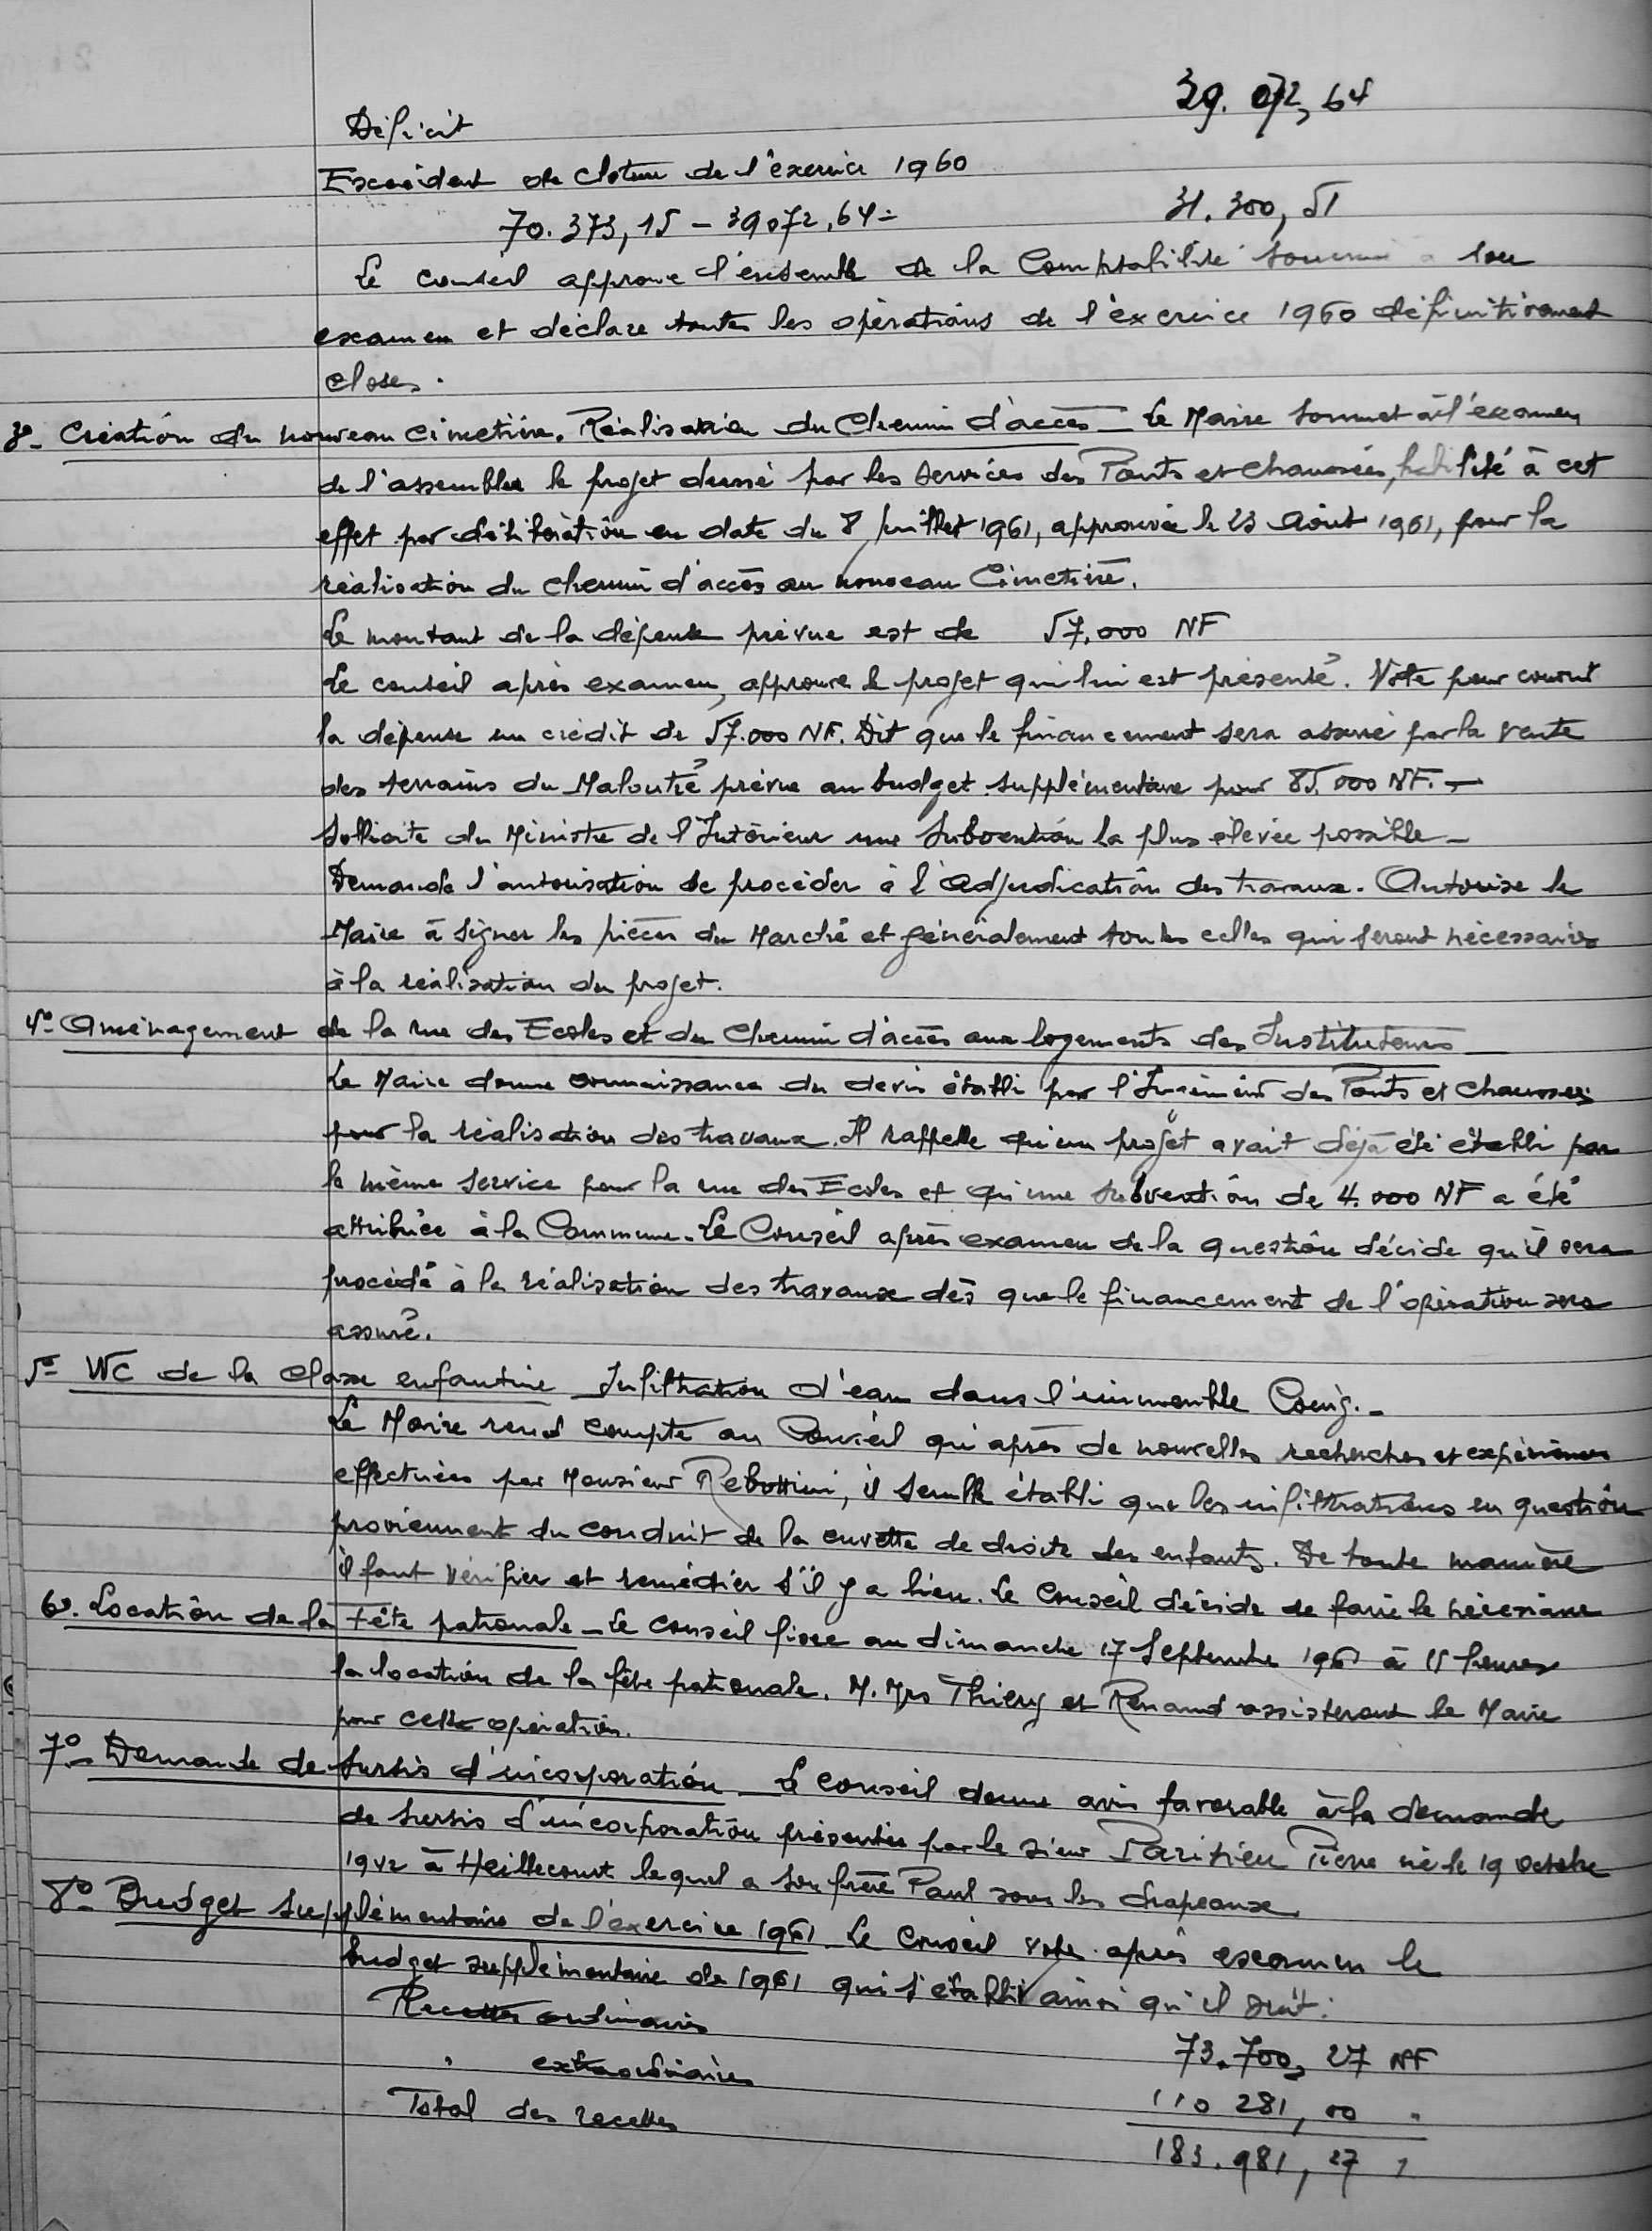 Déficit 39.072,64
Excédent de cloture de l'exercice 1960
70.373,15 - 39072,64 = 31.300,51
Le conseil approuve l'ensemble de la Comptabilité soumise à son
examen et déclare toutes les opérations de l'exercice 1960 définitivement
closes.
3°- Création du nouveau cimetière. Réalisation du Chemin d'accès - Le Maire soumet à l'examen
de l'assemblée le projet dressé par les services des Ponts et Chaussées, habilité à cet
effet par délibération en date du 8 juillet 1961, approuvée le 23 Août 1961, pour la
réalisation du chemin d'accès au nouveau Cimetière.
Le montant de la dépense prévue est de 57.000 NF
Le conseil après examen, approuve le projet qui lui est présenté. Vote pour couvrir
la dépense un crédit de 57.000 NF. Dit que le financement sera assuré par la vente
des terrains du Maloutré prévue au budget supplémentaire pour 85.000 NF. -
Sollicite du Ministre de l'Intérieur une Subvention la plus élevée possible -
Demande l'autorisation de procéder à l'Adjudication des travaux. Autorise le
Maire à signer les pièces du Marché et généralement toutes celles qui seront nécessaires
à la réalisation du projet.
4°- Aménagement de la rue des Ecoles et du Chemin d'accès aux logements des Instituteurs -
Le Maire donne connaissance du devis établi par l'Ingénieur des Ponts et Chaussées
pour la réalisation des travaux. Il rappelle qu'un projet avait déjà été établi par
le même service pour la rue des Ecoles et qu'une subvention de 4.000 NF a été
attribuée à la Commune. Le Conseil après examen de la question décide qu'il sera
procédé à la réalisation des travaux dès que le financement de l'opération sera
assuré.
5°- WC de la classe enfantine - Infiltration d'eau dans l'immeuble -
Le Maire rend compte au Conseil qu'après de nouvelles recherches et expériences
effectuées par Monsieur Rebottini, il semble établi que les infiltrations en question
proviennent du conduit de la cuvette de droite des enfants. De toute manière
il faut vérifier et remédier s'il y a lieu. Le Conseil décide de faire le nécessaire
6°. Location de la Fête patronale - Le conseil fixe au dimanche 17 Septembre 1961 à 11 heures
la location de la fête patronale. M. Mrs Thiery et Renaud assisteront le Maire
pour cette opération.
7°- Demande de sursis d'incorporation - Le conseil donne avis favorable à la demande
de sursis d'incorporation présentée par le sieur Parisien Pierre né le 19 octobre
1942 à Heillecourt lequel a son frère Paul sous les drapeaux.
8°- Budget supplémentaire de l'exercice 1961 - Le Conseil vote après examen le
budget supplémentaire de 1961 qui s'établit ainsi qu'il suit:
Recettes ordinaires 73.700,27 NF
" extraordinaires 110 281,00 "
Total des recettes 183.981,27 "